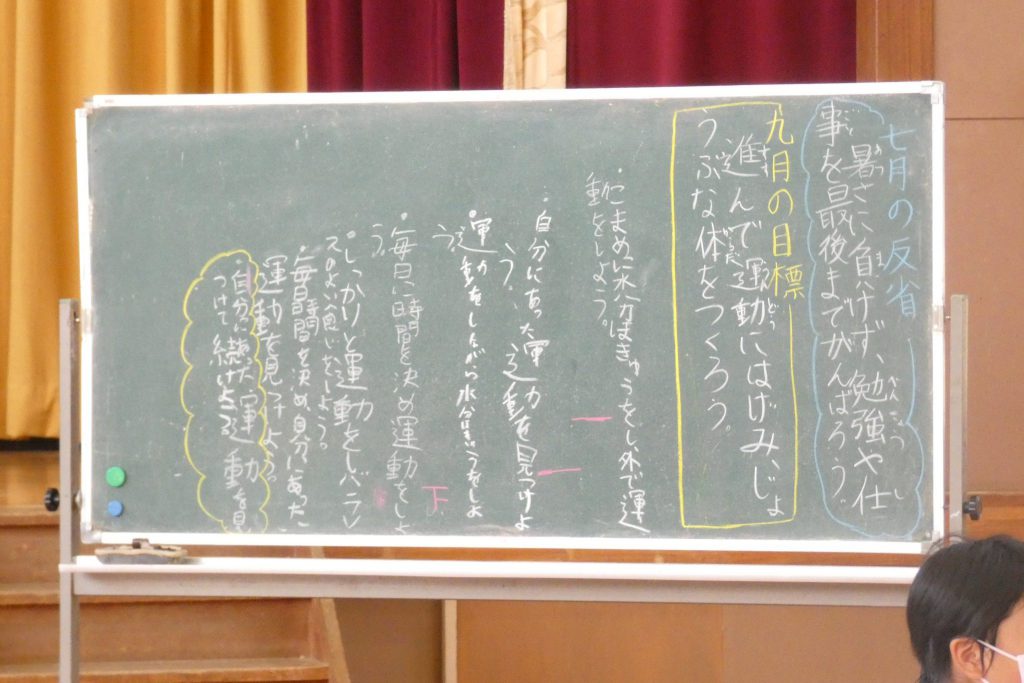 七月の反省
暑さに負けず、勉強や仕
事を最後までがんばろう。
九月の目標
進んで運動にはげみ、じょ
うぶな体をつくろう。
・こまめに水分ほきゅうをし、外で運
動をしよう。
・自分にあった運動を見つけよ
う。
・運動をしながら水分ほきゅうをしよ
う。
・毎日、時間を決め運動をしよ
う。
・しっかりと運動をしバランス
のよい食じをしよう。
・毎日時間を決め自分にあった
運動を見つけよう。
自分に合った運動を見
つけて続けよう。